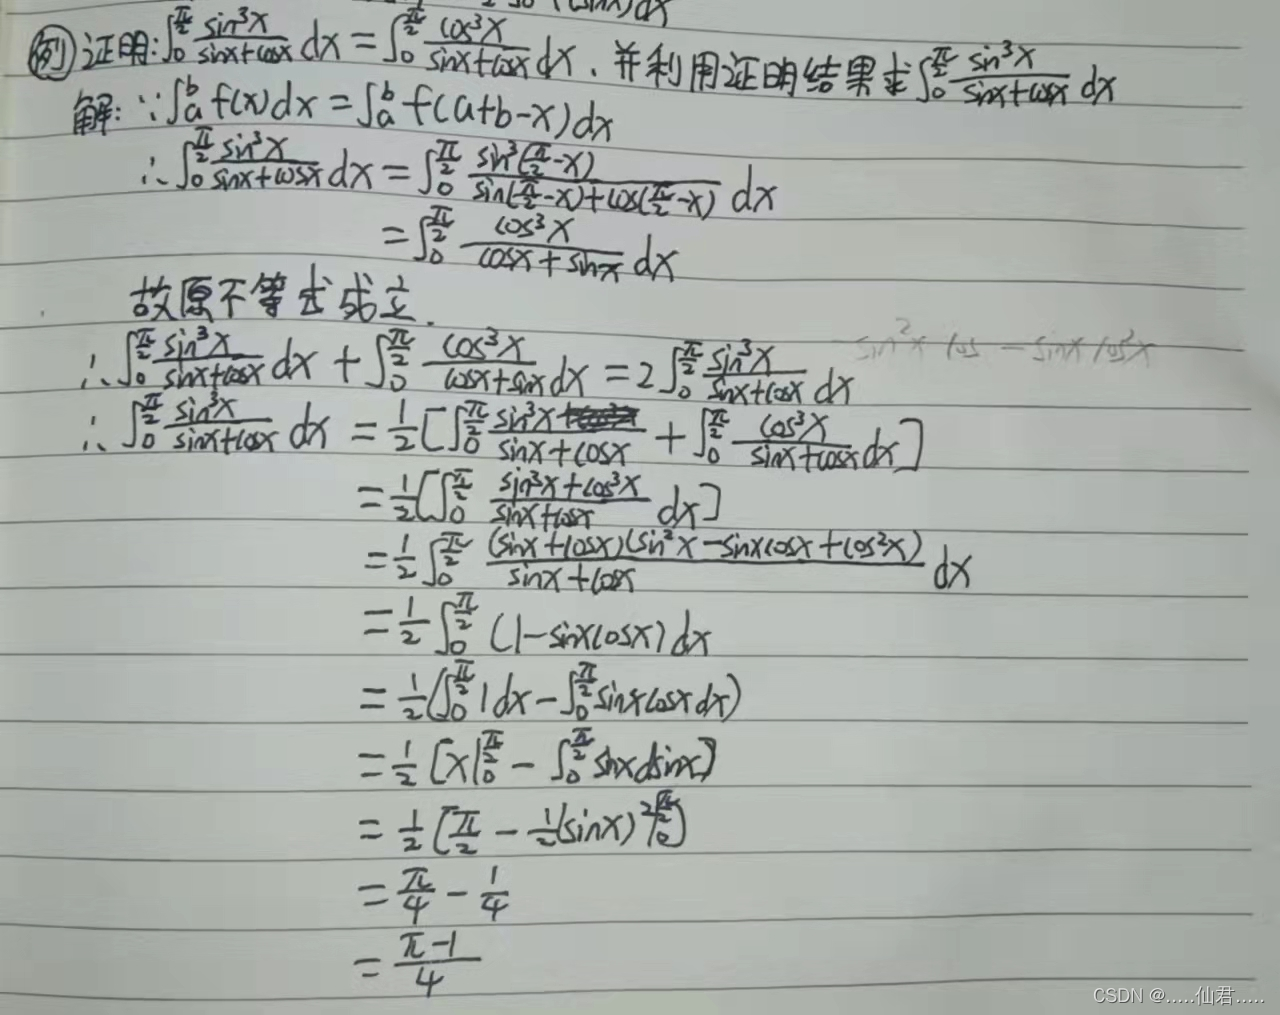 例 证明:∫₀^(π/2) sin³x/(sinx+cosx) dx = ∫₀^(π/2) cos³x/(sinx+cosx) dx、并利用证明结果求∫₀^(π/2) sin³x/(sinx+cosx) dx
解:∵∫ₐᵇ f(x)dx = ∫ₐᵇ f(a+b-x)dx
∴∫₀^(π/2) sin³x/(sinx+cosx) dx = ∫₀^(π/2) sin³(π/2-x)/(sin(π/2-x)+cos(π/2-x)) dx
= ∫₀^(π/2) cos³x/(cosx+sinx) dx
故原不等式成立.
sin²x cos - sinx cos²x
∴∫₀^(π/2) sin³x/(sinx+cosx) dx + ∫₀^(π/2) cos³x/(cosx+sinx) dx = 2∫₀^(π/2) sin³x/(sinx+cosx) dx
∴∫₀^(π/2) sin³x/(sinx+cosx) dx = 1/2[∫₀^(π/2) sin³x/(sinx+cosx) + ∫₀^(π/2) cos³x/(sinx+cosx) dx]
= 1/2[∫₀^(π/2) (sin³x+cos³x)/(sinx+cosx) dx]
= 1/2 ∫₀^(π/2) (sinx+cosx)(sin²x-sinxcosx+cos²x)/(sinx+cosx) dx
= 1/2 ∫₀^(π/2) (1-sinxcosx)dx
= 1/2(∫₀^(π/2) 1dx - ∫₀^(π/2) sinxcosxdx)
= 1/2[x|₀^(π/2) - ∫₀^(π/2) sinxdsinx]
= 1/2[π/2 - 1/2(sinx)²|₀^(π/2)]
= π/4 - 1/4
= (π-1)/4
CSDN @.....仙君.....